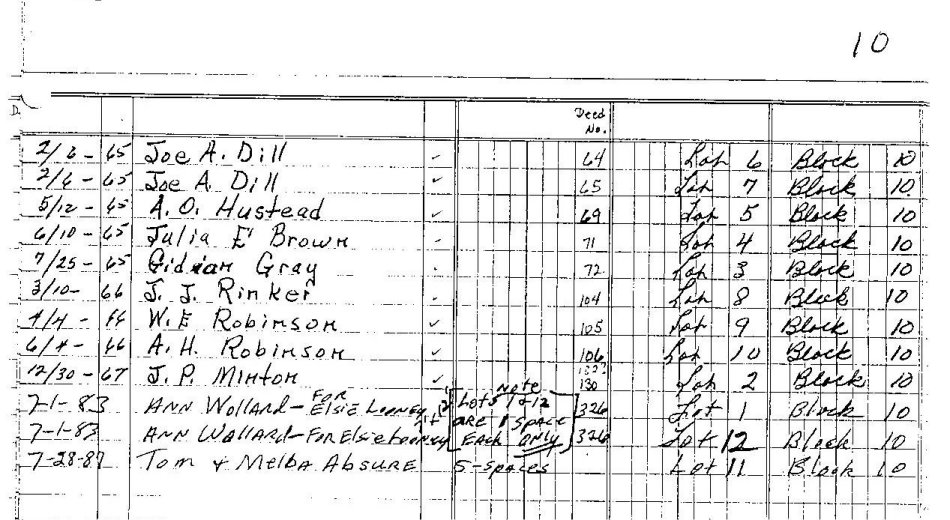 10
D.
Deed No.
2/6-65 Joe A. Dill ✓ 64 Lot 6 Block 10
2/6-65 Joe A. Dill ✓ 65 Lot 7 Block 10
5/12-65 A. O. Hustead ✓ 69 Lot 5 Block 10
6/10-65 Julia E Brown 71 Lot 4 Block 10
7/25-65 Gray 72 Lot 3 Block 10
3/10-66 J. J. Rinker 104 Lot 8 Block 10
4/4-66 W. E Robinson ✓ 105 Lot 9 Block 10
6/4-66 A. H. Robinson ✓ 106 Lot 10 Block 10
12/30-67 J. P. Minton ✓ 130 Lot 2 Block 10
Note
7-1-83 Ann Wollard - For Elsie Looney Lots 1 & 12 326 Lot 1 Block 10
are 1 space
7-1-83 Ann Wollard - For Elsie Looney Each only 326 Lot 12 Block 10
7-28-87 Tom & Melba Absure 5-spaces Lot 11 Block 10